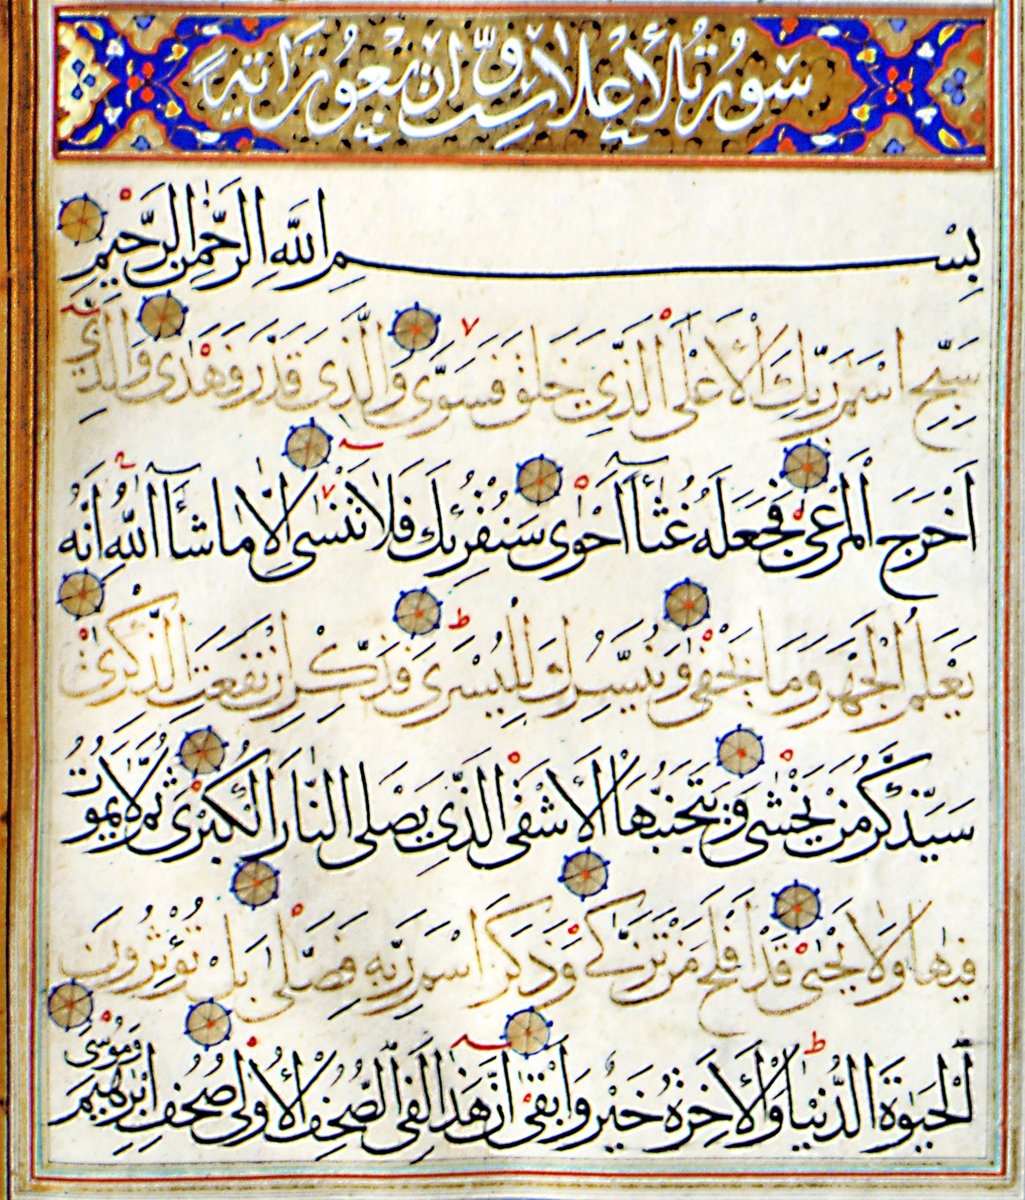 سورة الأعلى ست وأربعون آية
بِسْمِ اللَّهِ الرَّحْمَٰنِ الرَّحِيمِ
سَبِّحِ اسْمَ رَبِّكَ الْأَعْلَى الَّذِي خَلَقَ فَسَوَّى وَالَّذِي قَدَّرَ فَهَدَى وَالَّذِي
أَخْرَجَ الْمَرْعَى فَجَعَلَهُ غُثَآءً أَحْوَى سَنُقْرِئُكَ فَلَا تَنْسَى إِلَّا مَا شَآءَ اللَّهُ إِنَّهُ
يَعْلَمُ الْجَهْرَ وَمَا يَخْفَى وَنُيَسِّرُكَ لِلْيُسْرَى فَذَكِّرْ إِنْ نَفَعَتِ الذِّكْرَى
سَيَذَّكَّرُ مَنْ يَخْشَى وَيَتَجَنَّبُهَا الْأَشْقَى الَّذِي يَصْلَى النَّارَ الْكُبْرَى ثُمَّ لَا يَمُوتُ
فِيهَا وَلَا يَحْيَى قَدْ أَفْلَحَ مَنْ تَزَكَّى وَذَكَرَ اسْمَ رَبِّهِ فَصَلَّى بَلْ تُؤْثِرُونَ
الْحَيَوٰةَ الدُّنْيَا وَالْآخِرَةُ خَيْرٌ وَأَبْقَى إِنَّ هَذَا لَفِي الصُّحُفِ الْأُولَى صُحُفِ إِبْرَاهِيمَ وَمُوسَى